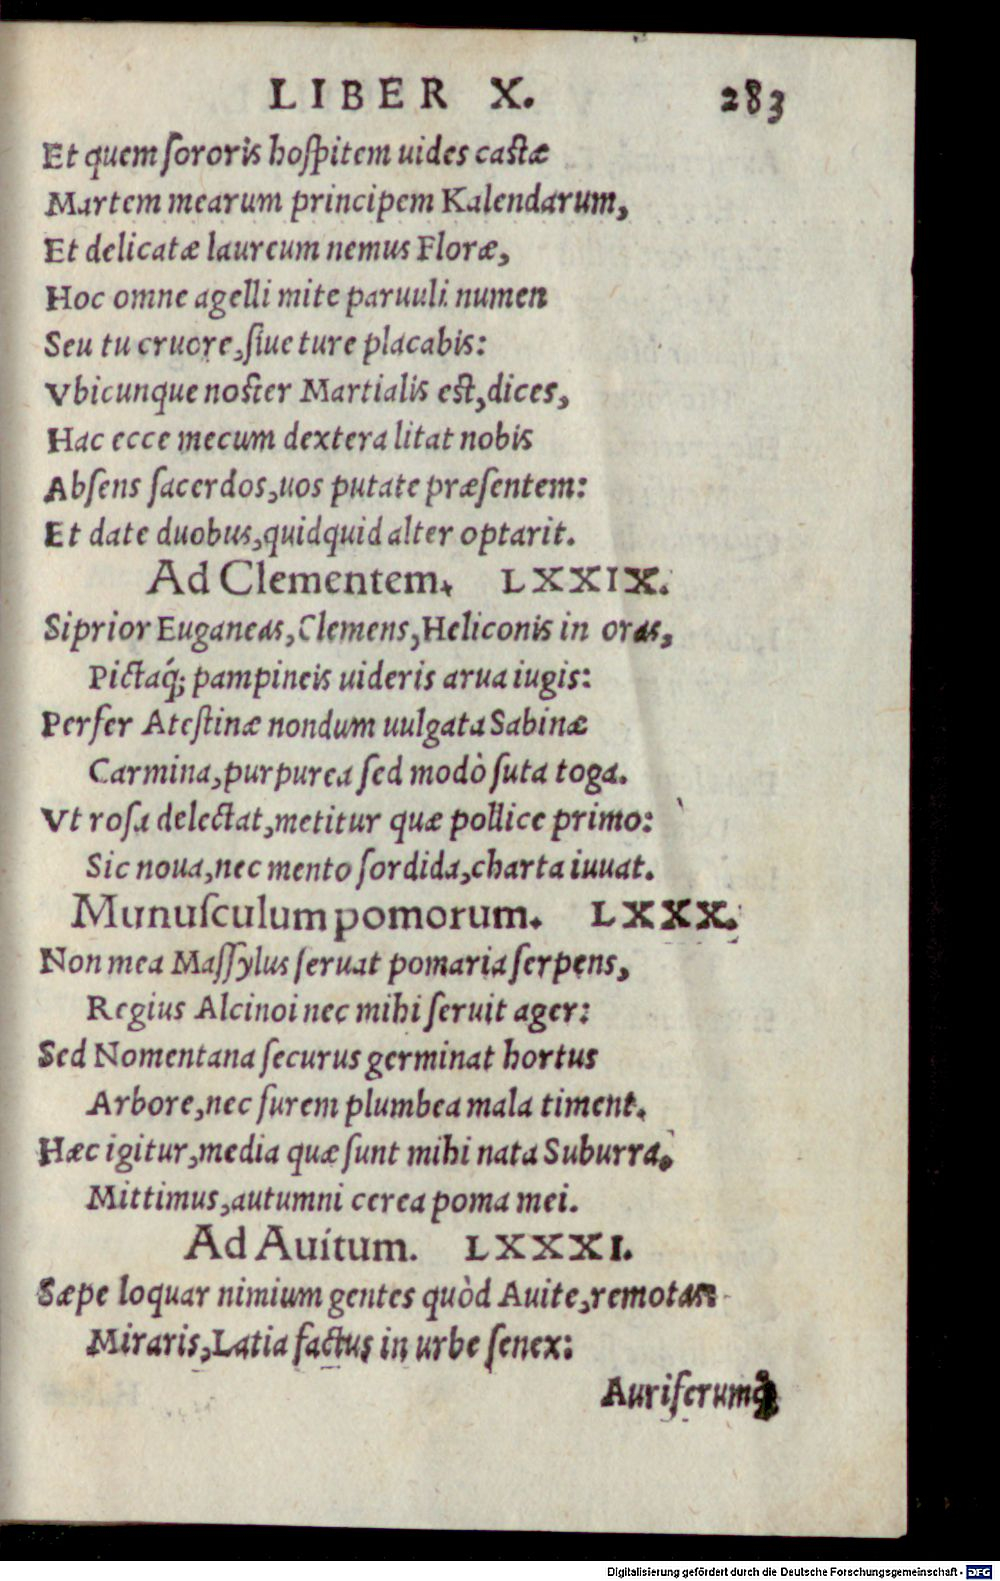 LIBER X. 283
Et quem sororis hospitem uides castæ
Martem mearum principem Kalendarum,
Et delicatæ laureum nemus Floræ,
Hoc omne agelli mite paruuli numen
Seu tu cruore, siue ture placabis:
Vbicunque noster Martialis est, dices,
Hac ecce mecum dextera litat nobis
Absens sacerdos, uos putate præsentem:
Et date duobus, quidquid alter optarit.
Ad Clementem. LXXIX.
Si prior Euganeas, Clemens, Heliconis in oras,
Pictaq́; pampineis uideris arua iugis:
Perfer Atestinæ nondum uulgata Sabinæ
Carmina, purpurea sed modò suta toga.
Vt rosa delectat, metitur quæ pollice primo:
Sic noua, nec mento sordida, charta iuuat.
Munusculum pomorum. LXXX.
Non mea Massylus seruat pomaria serpens,
Regius Alcinoi nec mihi seruit ager:
Sed Nomentana securus germinat hortus
Arbore, nec furem plumbea mala timent.
Hæc igitur, media quæ sunt mihi nata Suburra.
Mittimus, autumni cerea poma mei.
Ad Avitum. LXXXI.
Sæpe loquar nimium gentes quòd Auite, remotas:
Miraris, Latia factus in urbe senex:
Auriferumq́;
Digitalisierung gefördert durch die Deutsche Forschungsgemeinschaft - DFG